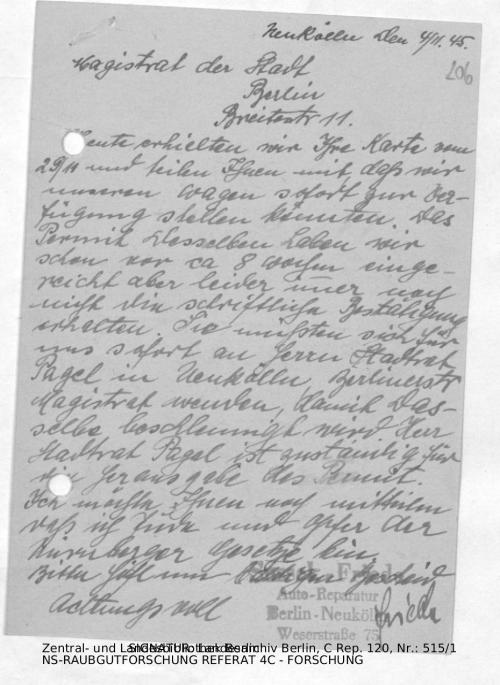 Neukölln den 4/11. 45.
206
Magistrat der Stadt
Berlin
Breitestr 11.
Heute erhielten wir Ihre Karte vom
29/11 und teilen Ihnen mit daß wir
unseren Wagen sofort zur Ver-
fügung stellen könnten. Das
Permit desselben haben wir
schon vor ca 8 Wochen einge-
reicht aber leider immer noch
nicht die schriftliche Bestätigung
erhalten. Sie müßten sich für
uns sofort an Herrn Stadtrat
Pagel in Neukölln, Berlinerstr
Magistrat wenden, damit das-
selbe beschleunigt wird Herr
Stadtrat Pagel ist zuständig für
die Herausgabe des Permit.
Ich möchte Ihnen noch mitteilen
daß ich Jude und Opfer der
Nürnberger Gesetze bin.
Bitte Bescheid
Achtungsvoll
Auto-Reparatur
Berlin-Neukölln
Weserstraße 75
Zentral- und Landesbibliothek Berlin
SIGNATUR: Landesarchiv Berlin, C Rep. 120, Nr.: 515/1
NS-RAUBGUTFORSCHUNG REFERAT 4C - FORSCHUNG